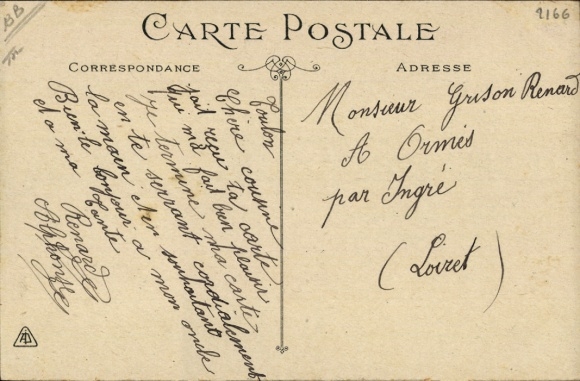 BB
2166
CARTE POSTALE
CORRESPONDANCE
ADRESSE
Toulon
Chère cousine
jait reçu ta carte
qui m'a fait bien plaisir
Je termine ma carte
en te serrant cordialement
la main et en souhaitant
Bien le bonjour a mon oncle
et a ma tante
Renard
Alphonse
Monsieur Grison Renard
A Ormes
par Ingré
(Loiret)